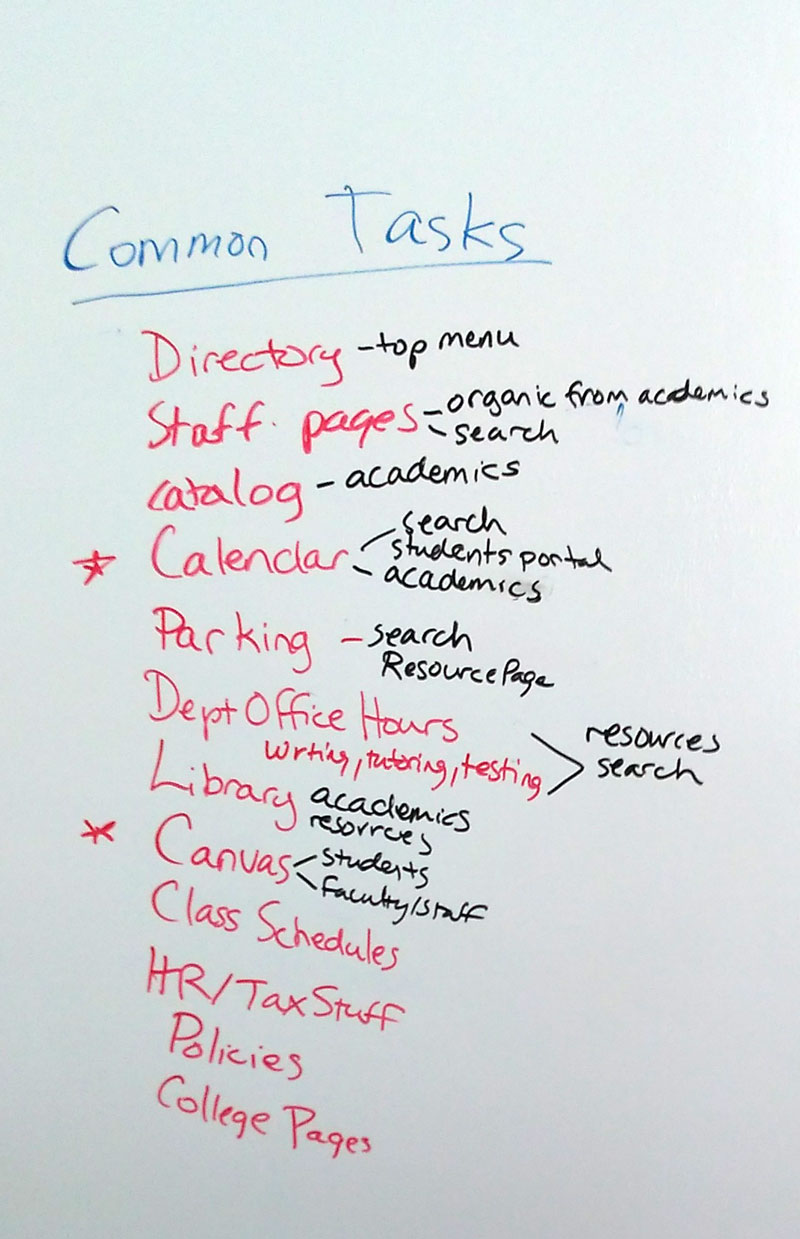 Common Tasks
Directory - top menu
Staff pages - organic from academics
- search
catalog - academics
search
* Calendar students portal
- academics
Parking - search
Resource Page
Dept Office Hours
resources
writing, tutoring, testing search
Library academics
resources
* Canvas students
faculty/staff
Class Schedules
HR/Tax Stuff
Policies
College Pages